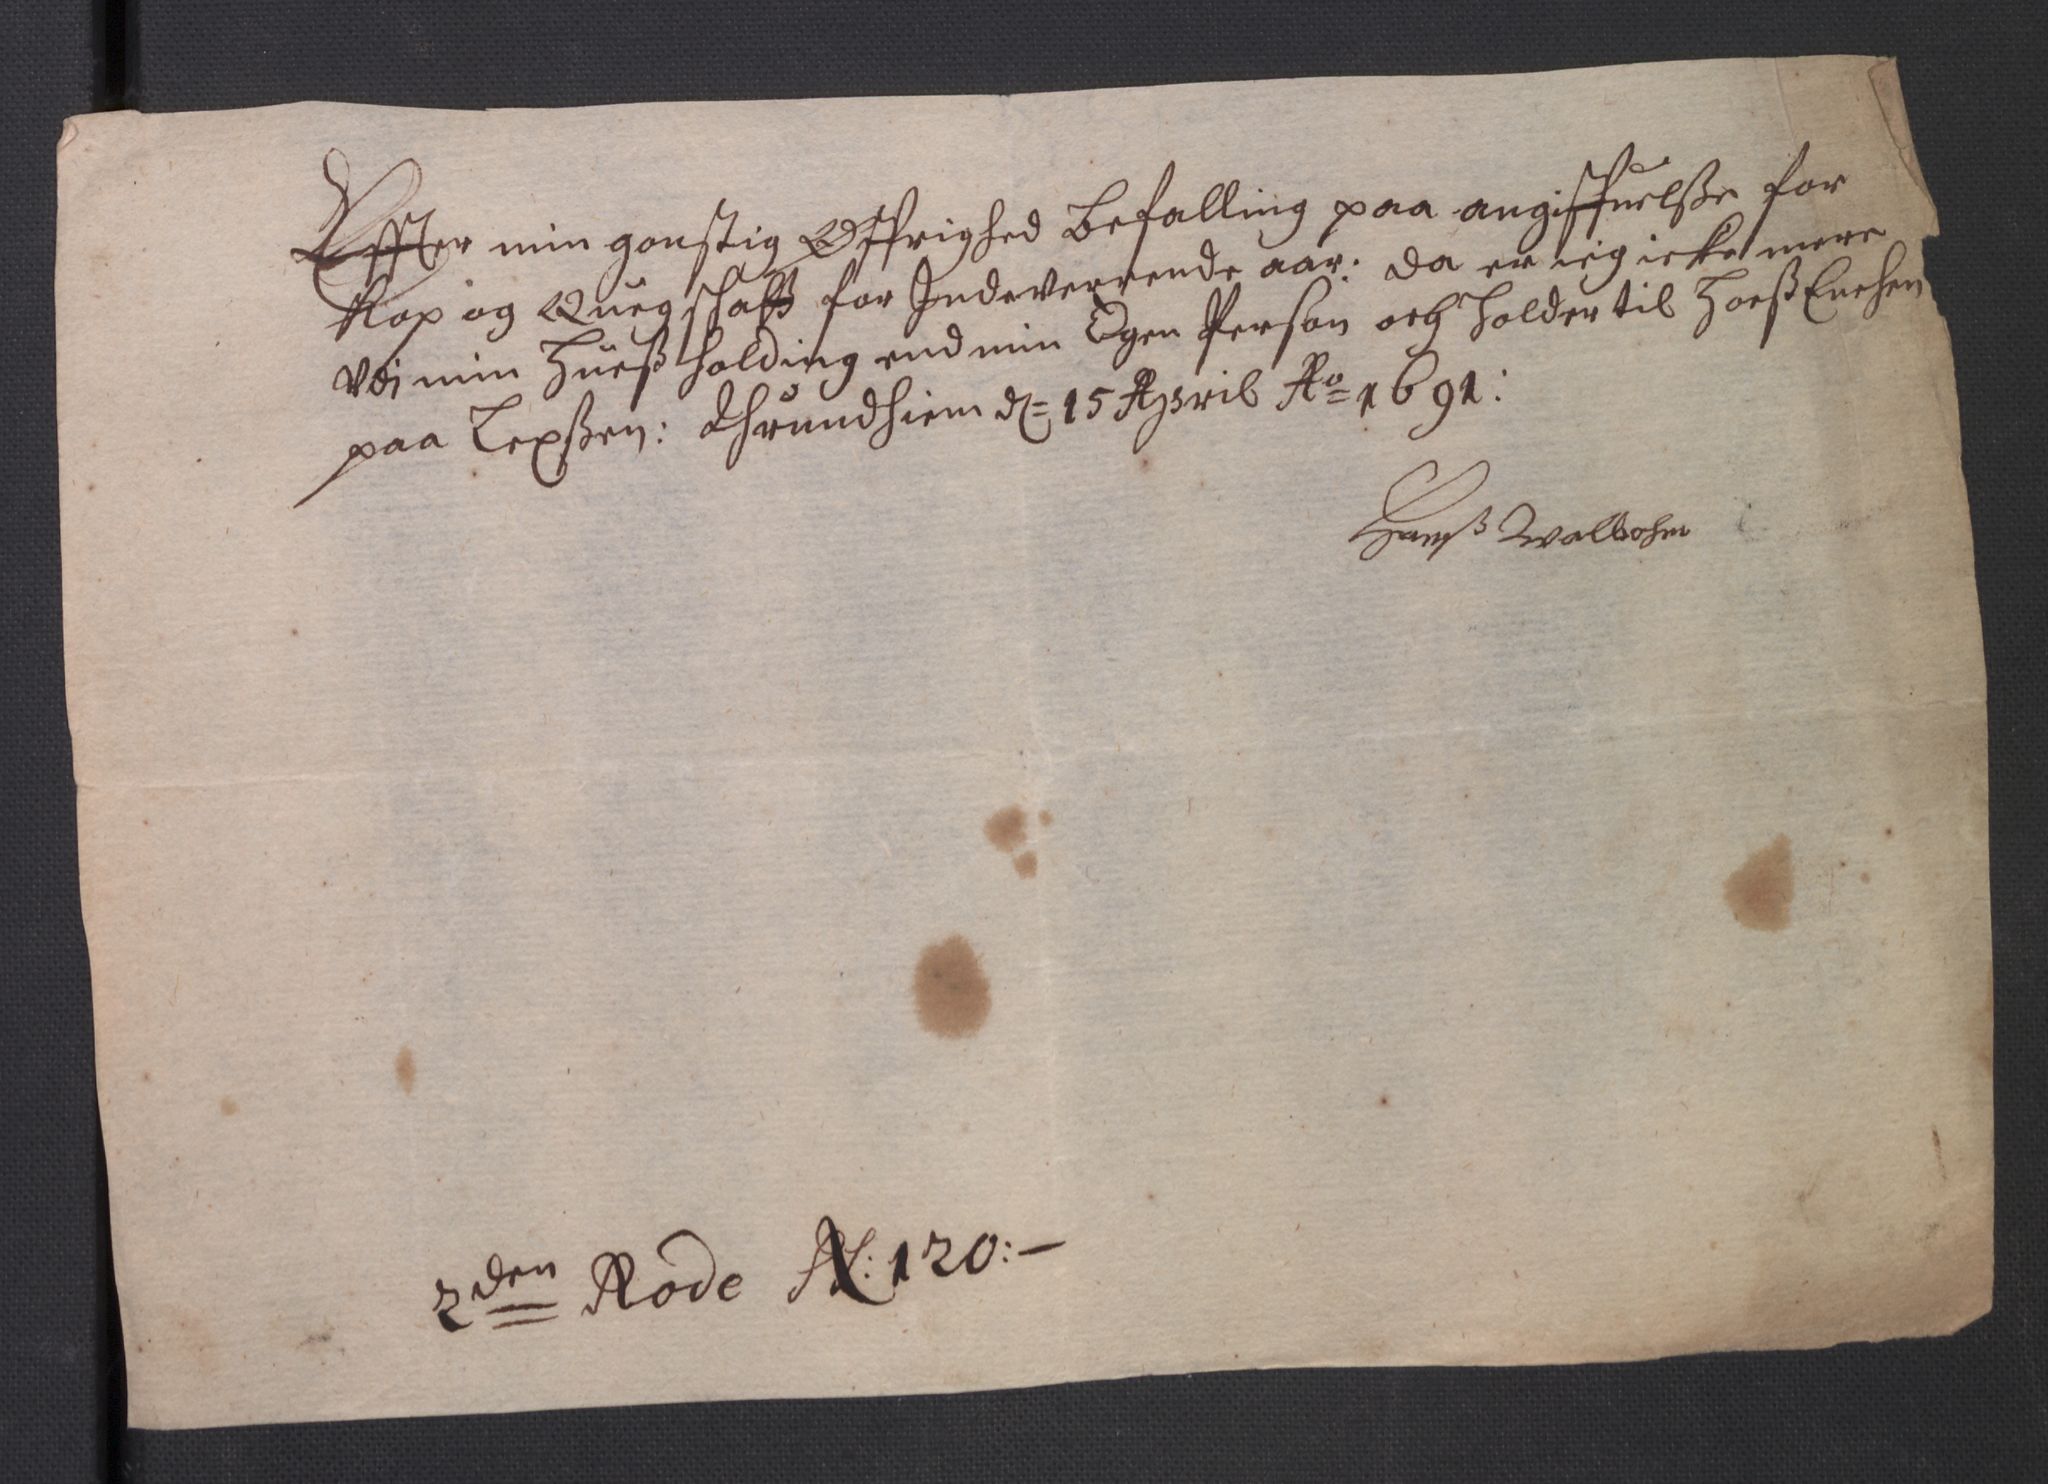 Effter min gonstig Øffrighed Befalling paa angiffuelße for
Kop og Quegschatt for Indeverrende aar: da er ieg icke mere
vdi min Huußholding end min Egen Person och holder til Hoeß Enchen
paa Lexßen: Thrundhiem d= 15 Appril Ao= 1691:
Hanß Wallbohm
2den Rode N: 120:-